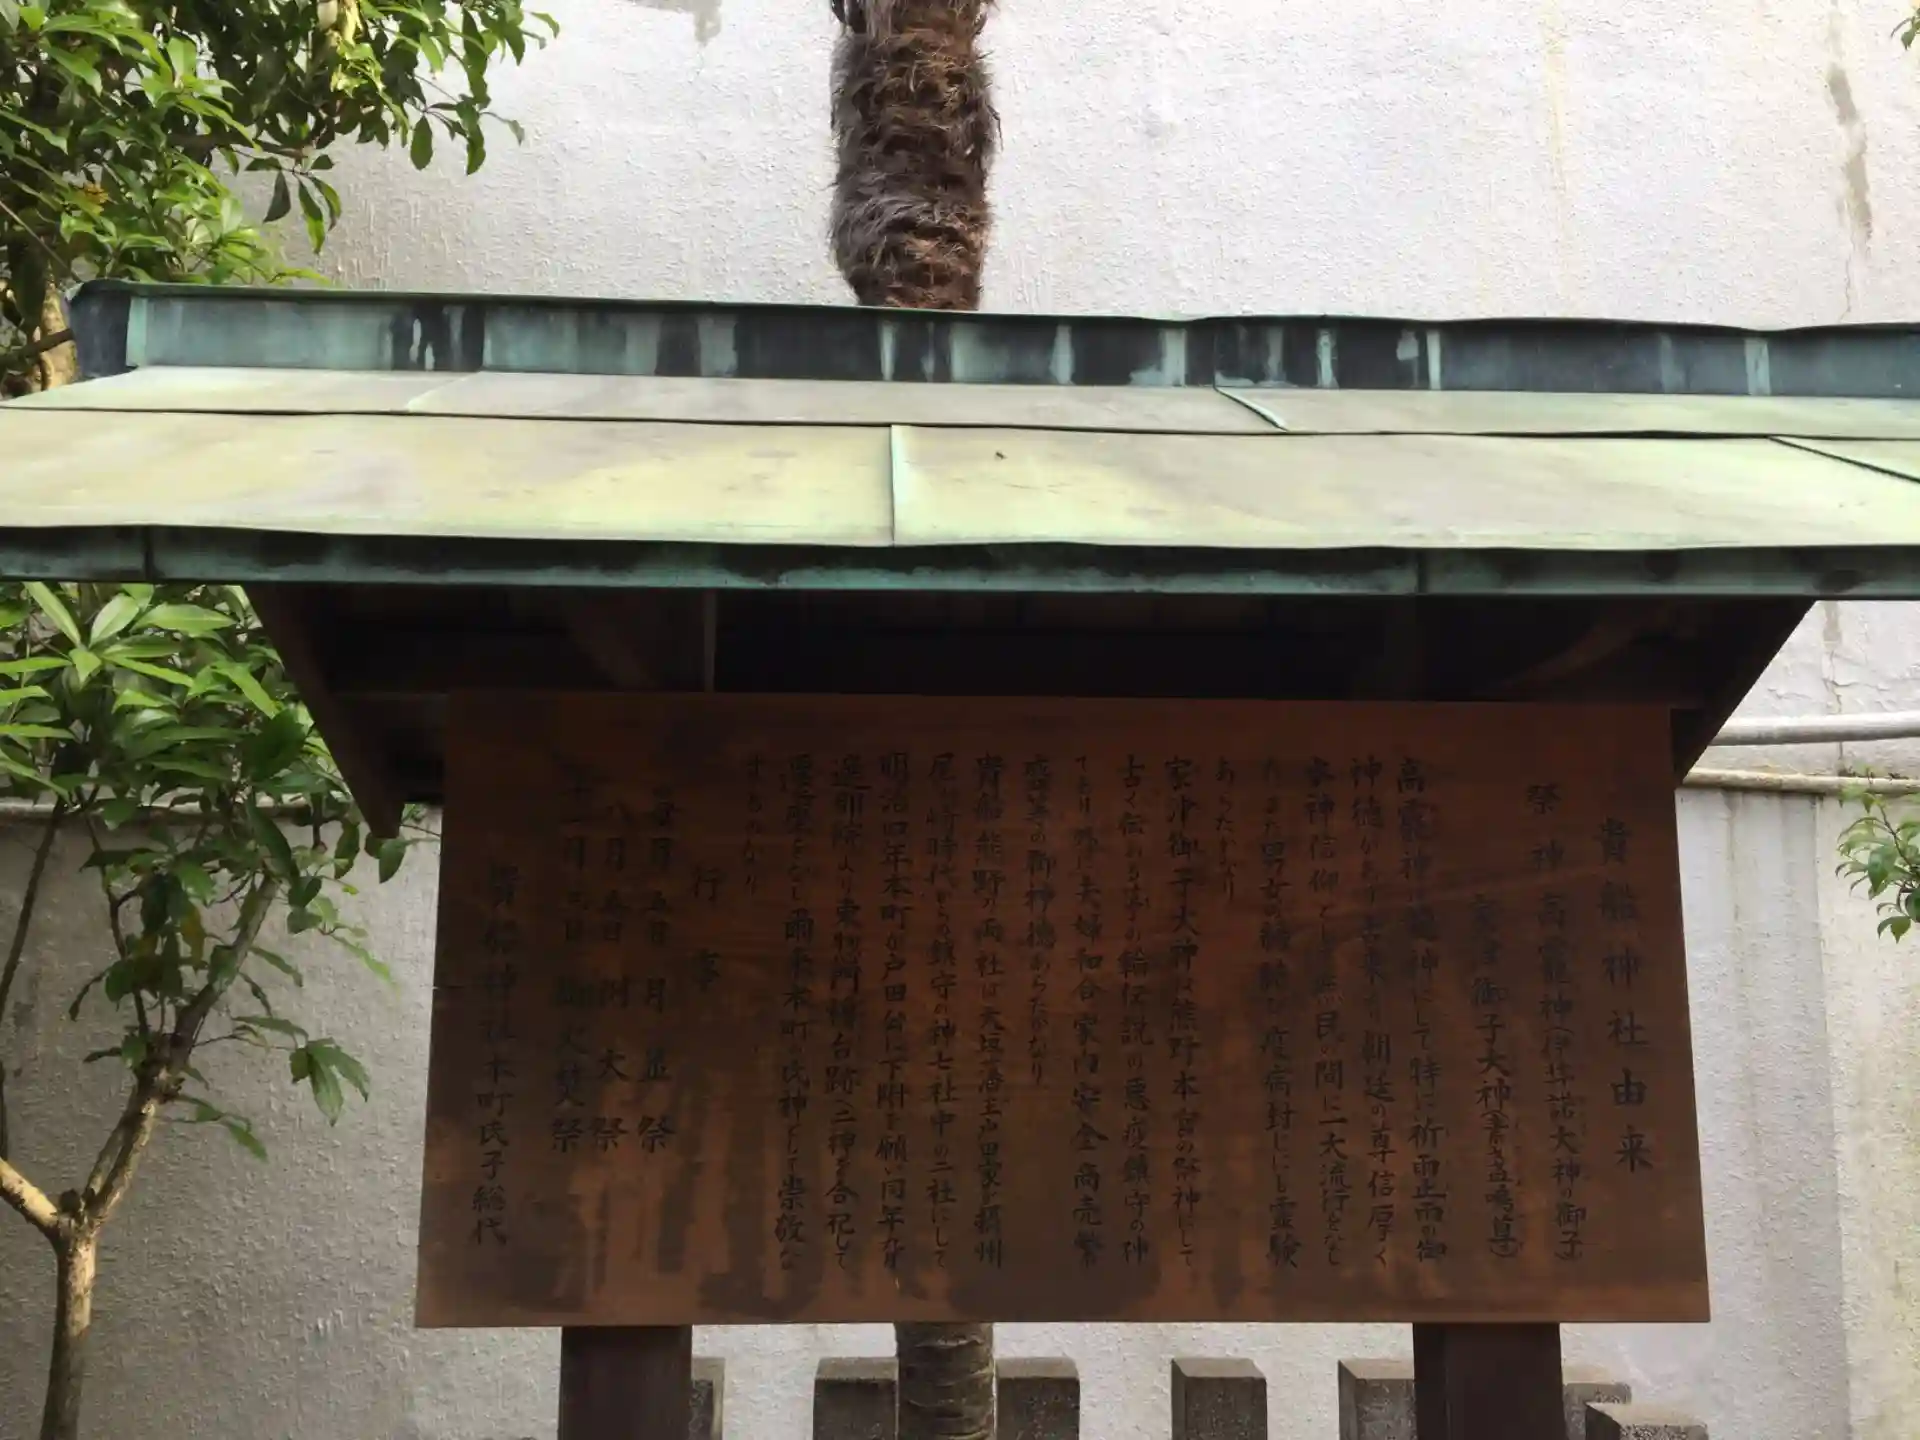 貴船神社由来
祭神 高龗神(伊弉諾大神の御子)
家津御子大神(素盞鳴尊)
高龗神は龍神にして特に祈雨止雨の御
神徳があり古来より朝廷の尊信厚く
水神信仰として庶民の間に一大流行をなし
また男女の縁結び疫病封じにも霊験
あらたかなり
家津御子大神は熊野本宮の祭神にして
古く伝わる の輪伝説の悪疫鎮守の神
であり外に夫婦和合家内安全商売繁
盛等の御神徳あらたかなり
貴船熊野の両社は大垣藩主戸田家が摂州
尼ヶ崎時代からの鎮守の神七社中の二社にして
明治四年本町が戸田公に下附を願い同年
遮那院より東物門 台跡へ二神を合祀して
爾来本町の氏神として崇敬な
すものなり
行事
毎月五日 月並祭
八月五日 例大祭
十二月 日 御火焚祭
貴船神社本町氏子総代